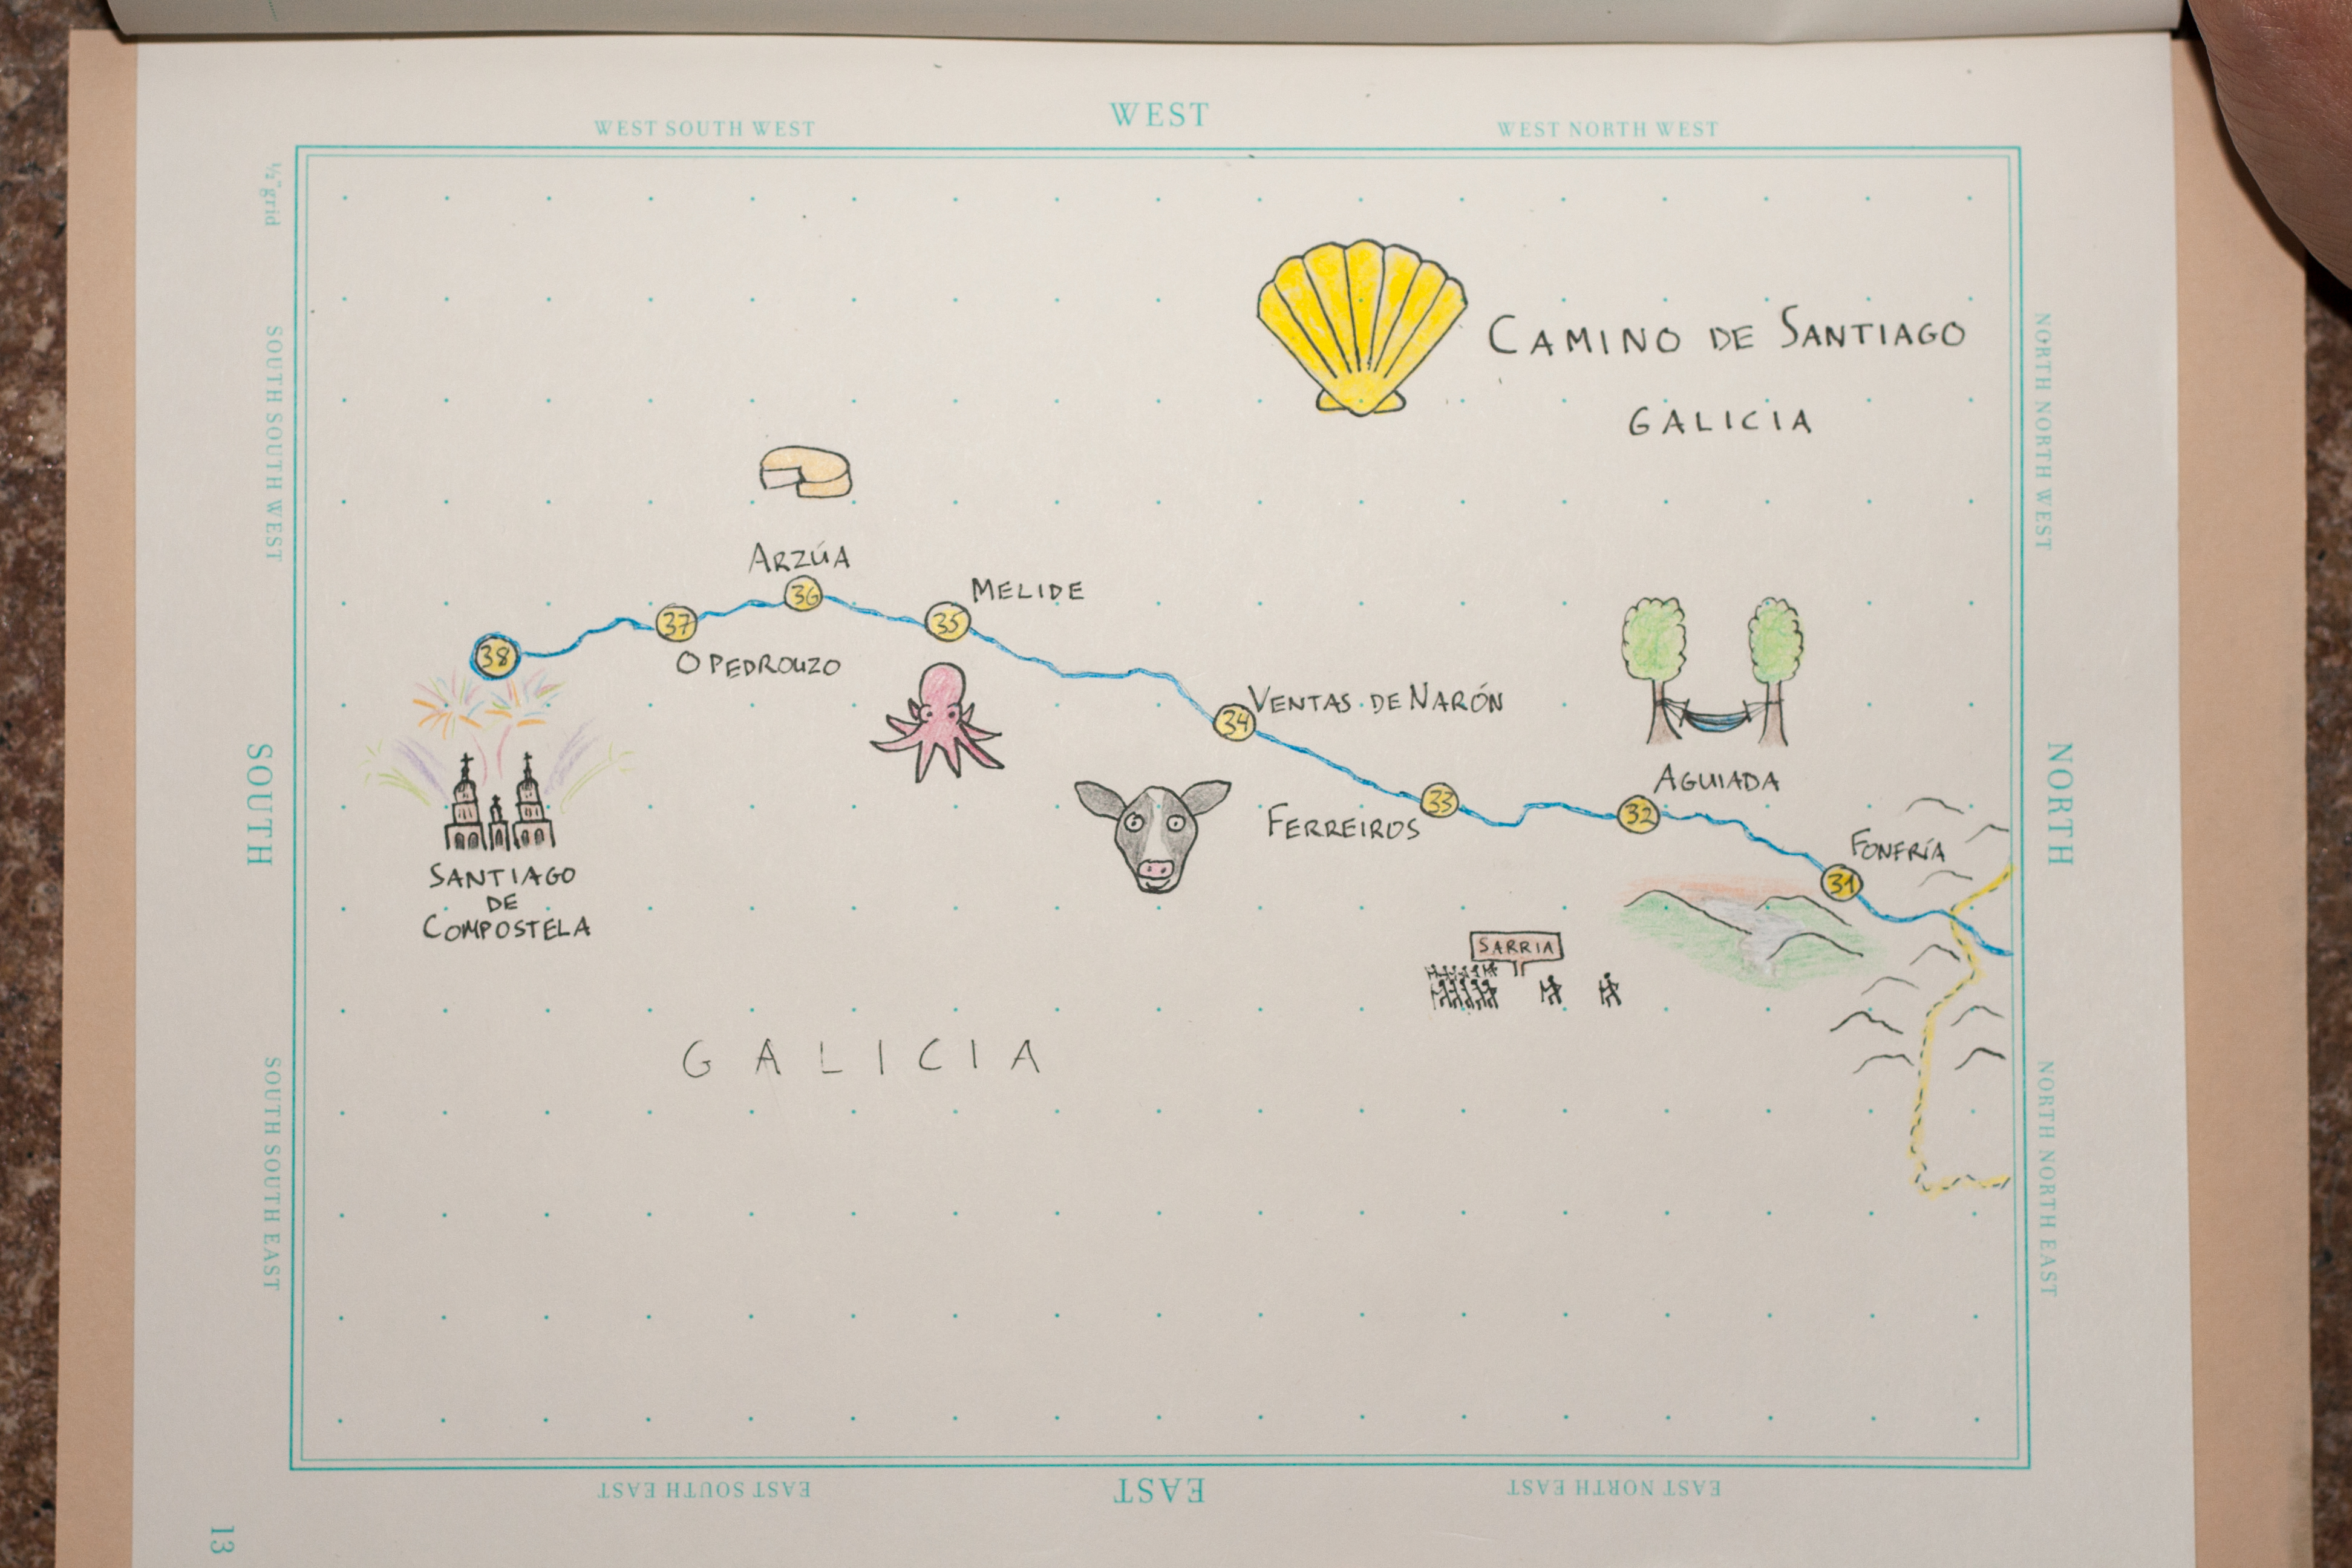 WEST
WEST SOUTH WEST
WEST NORTH WEST
½" grid
SOUTH SOUTH WEST
NORTH NORTH WEST
CAMINO DE SANTIAGO
GALICIA
ARZÚA
36
MELIDE
35
37
O PEDROUZO
38
VENTAS DE NARÓN
34
SOUTH
NORTH
AGUIADA
32
33
FERREIROS
FONFRÍA
31
SANTIAGO
DE
COMPOSTELA
SARRIA
GALICIA
SOUTH SOUTH EAST
NORTH NORTH EAST
EAST SOUTH EAST
EAST
EAST NORTH EAST
13